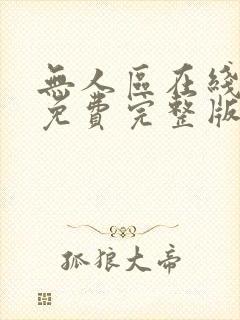 無人區在綫
免費完整版
孤狼大帝